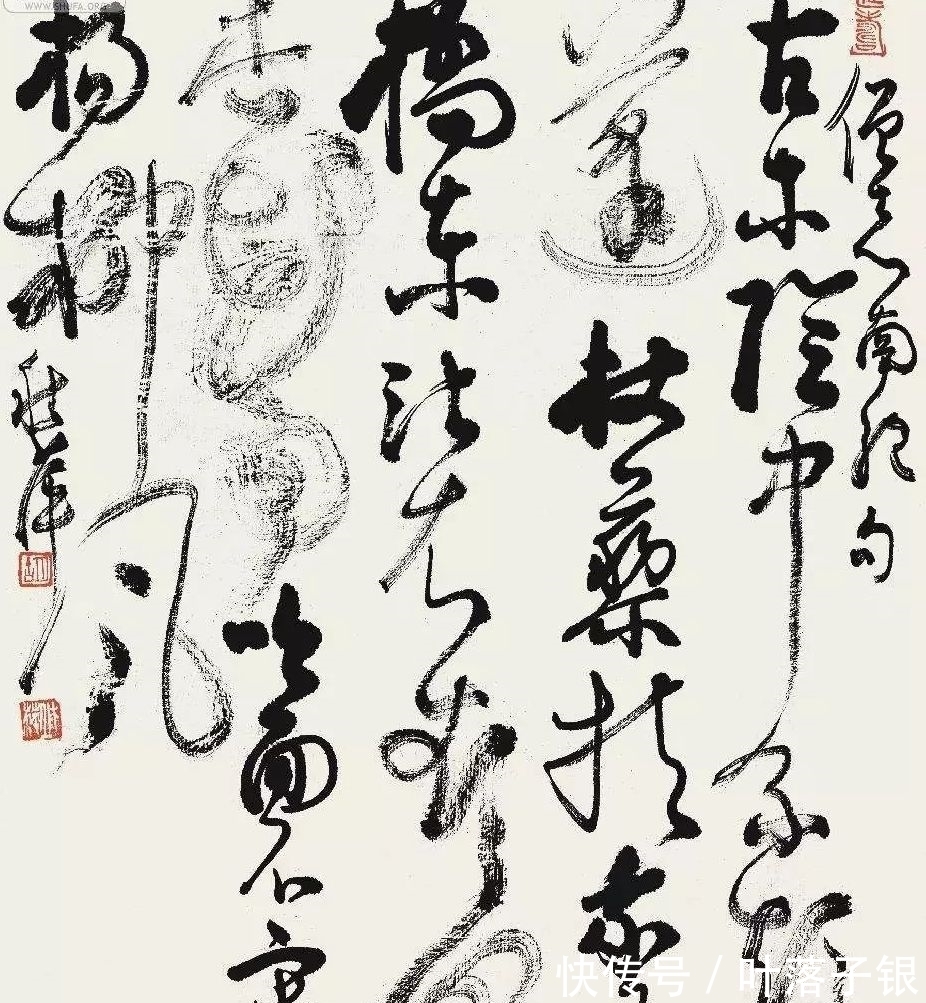 WWW.SHUFA.ORG
僧志南絕句
古木陰中系短
篷杖藜扶我
橋東沾衣欲濕
杏花雨吹面不寒
楊柳風
快传号 / 叶落子银